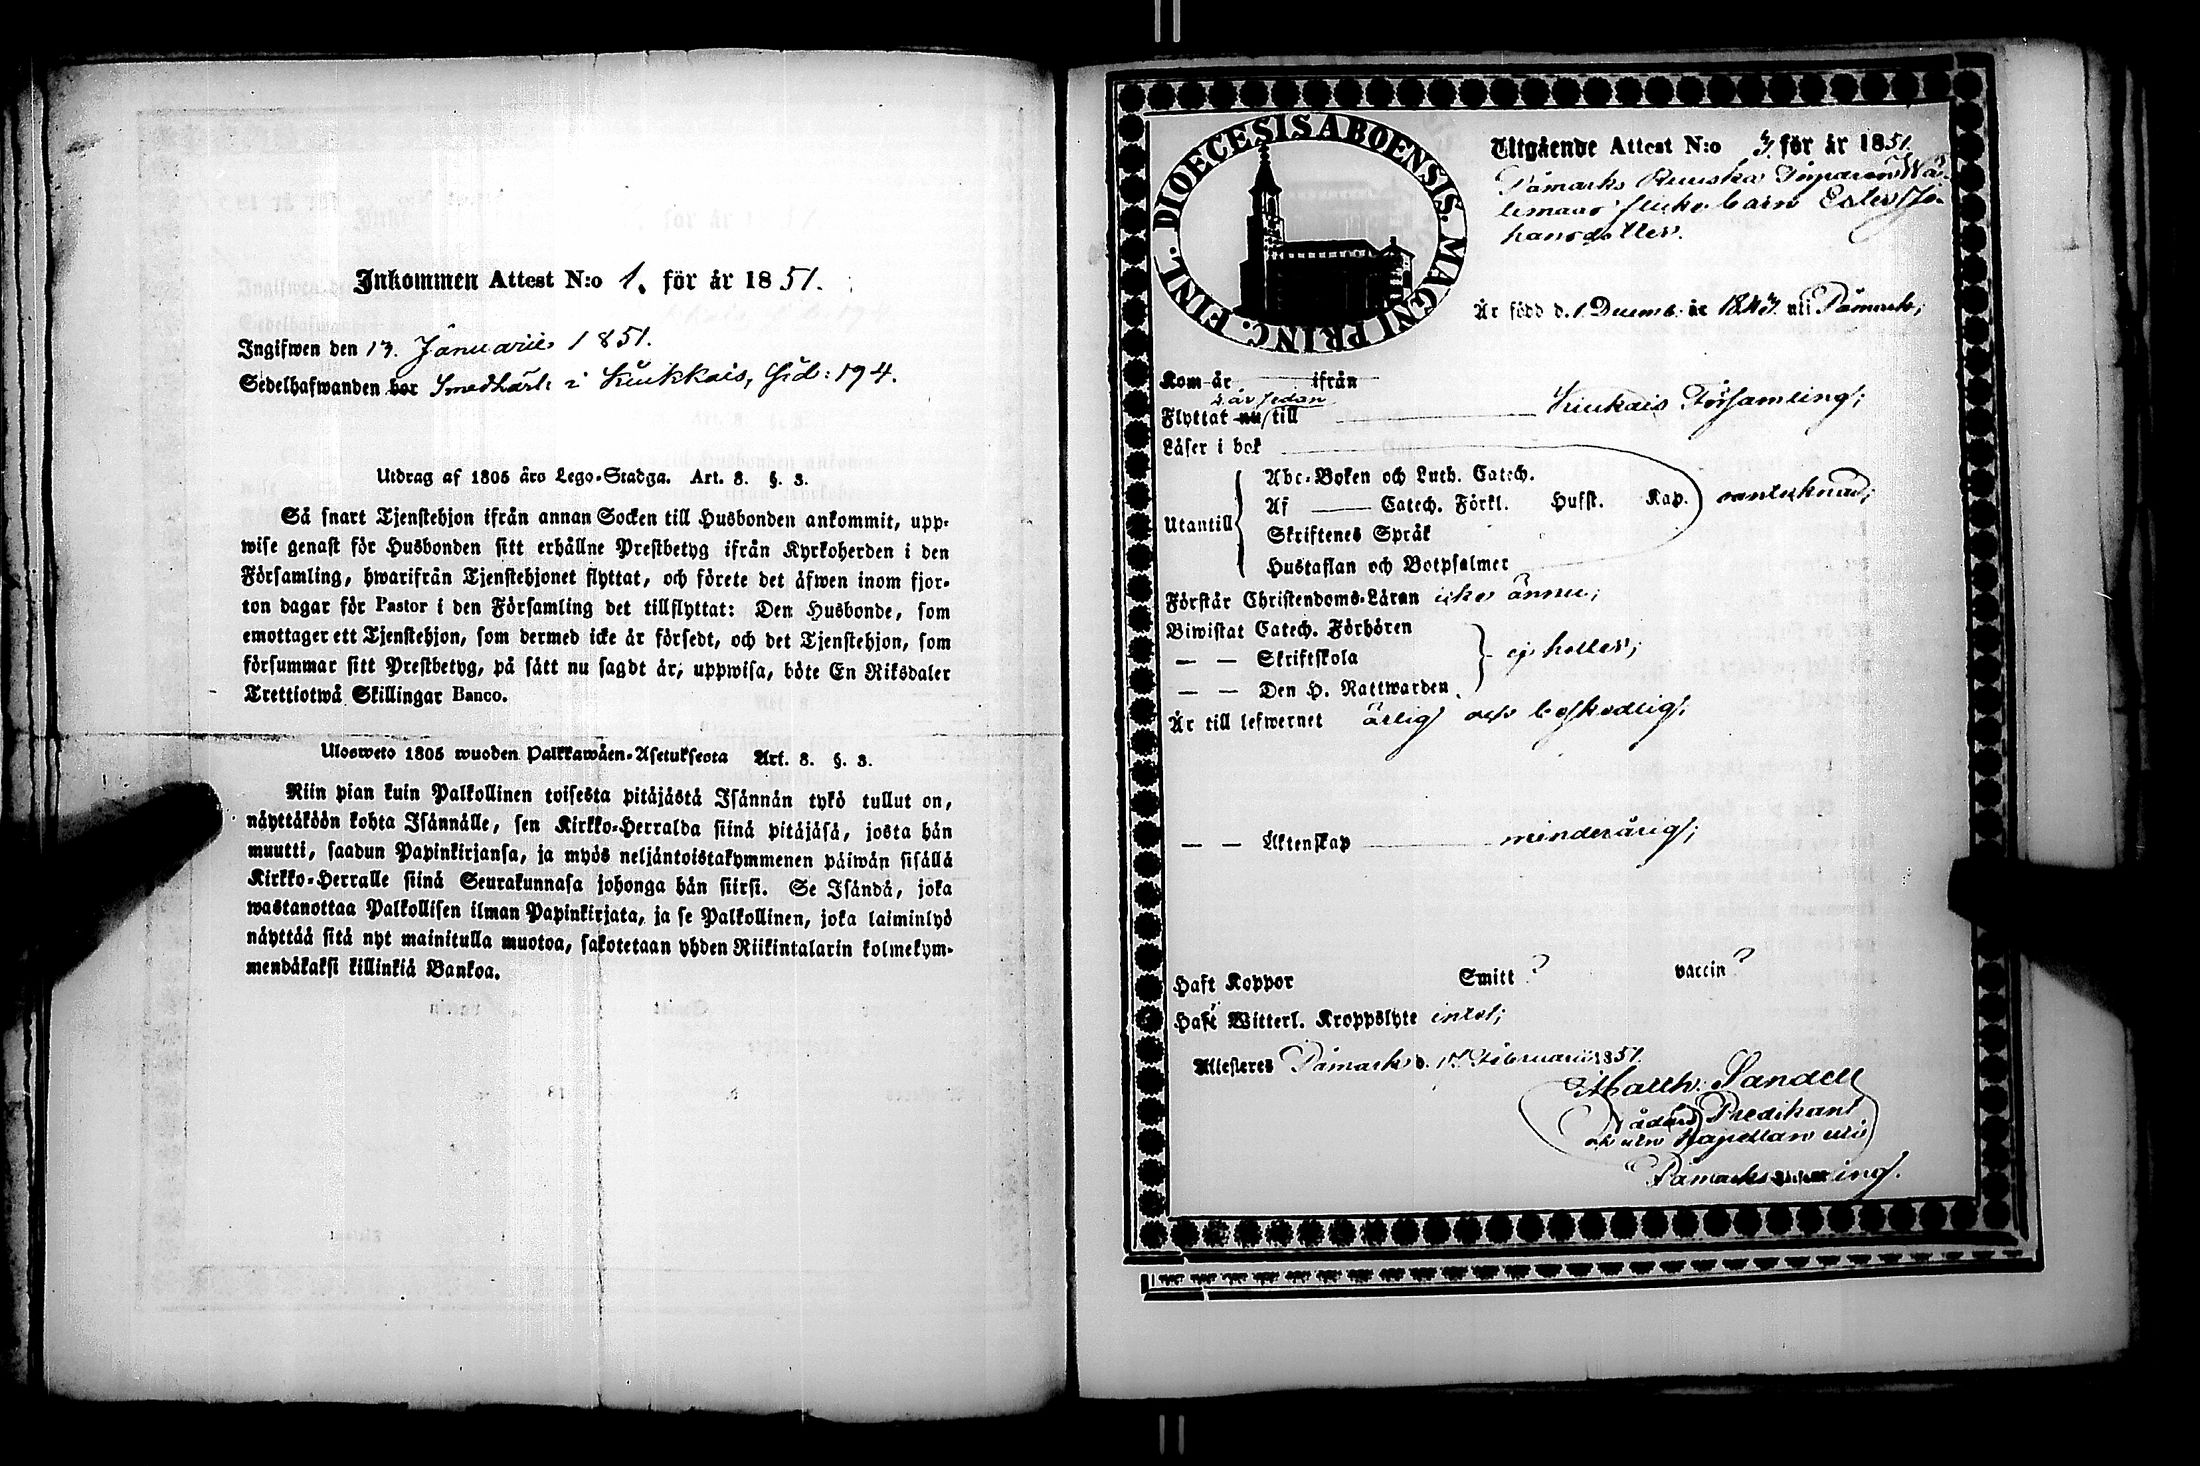 Inkommen Attest N:o 1. för år 1851.
Ingifwen den 13. Januarii 1851.
Sedelhafwanden bor Smedkärl i Kiukkais, Sid: 194.
Utdrag af 1805 års Lego-Stadga. Art. 8. §. 3.
Så snart Tjenstehjon ifrån annan Socken till Husbonden ankommit, upp-
wise genast för Husbonden sitt erhållne Prestbetyg ifrån Kyrkoherden i den
Församling, hwarifrån Tjenstehjonet flyttat, och förete det äfwen inom fjor-
ton dagar för Pastor i den Församling det tillflyttat: Den Husbonde, som
emottager ett Tjenstehjon, som dermed icke är försedt, och det Tjenstehjon, som
försummar sitt Prestbetyg, på sätt nu sagdt är, uppwisa, böte En Riksdaler
Trettiotwå Skillingar Banco.
Ulosweto 1805 wuoden Palkkawäen-Asetuksesta Art. 8. §. 3.
Niin pian kuin Palkollinen toisesta pitäjästä Isännän tykö tullut on,
näyttäköön kohta Isännälle, sen Kirkko-Herralda siinä pitäjäsä, josta hän
muutti, saadun Papinkirjansa, ja myös neljäntoistakymmenen päiwän sisällä
Kirkko-Herralle siinä Seurakunnasa johonga hän siirsi. Se Isändä, joka
wastanottaa Palkollisen ilman Papinkirjata, ja se Palkollinen, joka laiminlyö
näyttää sitä nyt mainitulla muotoa, sakotetaan yhden Riikintalarin kolmekym-
mendäkaksi killinkiä Bankoa.
DIOECESIS ABOENSIS. MAGNI PRINC. FINL.
Utgående Attest N:o 3. för år 1851.
Påmarks Ruuska Torparen Wa-
lemaas flicke barn Ester Jo-
hansdotter.
Är född d. 1 Decemb. år 1843. uti Påmark;
Kom år ifrån
2 år sedan
Flyttat nu/till Kiukais Församling;
Läser i bok
Abc-Boken och Luth. Catech.
Utantill Af Catech. Förkl. Husst. Kap. oanteknad;
Skriftenes Språk
Hustaflan och Botpsalmer
Förstår Christendoms-Läran icke ännu;
Biwistat Catech. Förhören
— — Skriftskola ej heller;
— — Den H. Nattwarden
Är till lefwernet ärlig och beskedlig.
— — Äktenskap minderårig;
Haft Koppor Smitt? vaccin?
Haft Witterl. Kroppslyte intet;
Attesteras Påmark d. 17 Februarii 1851.
Matth. Sandell
Nådårs Predikant
och utn Kapellan uti
Påmarks Församling.